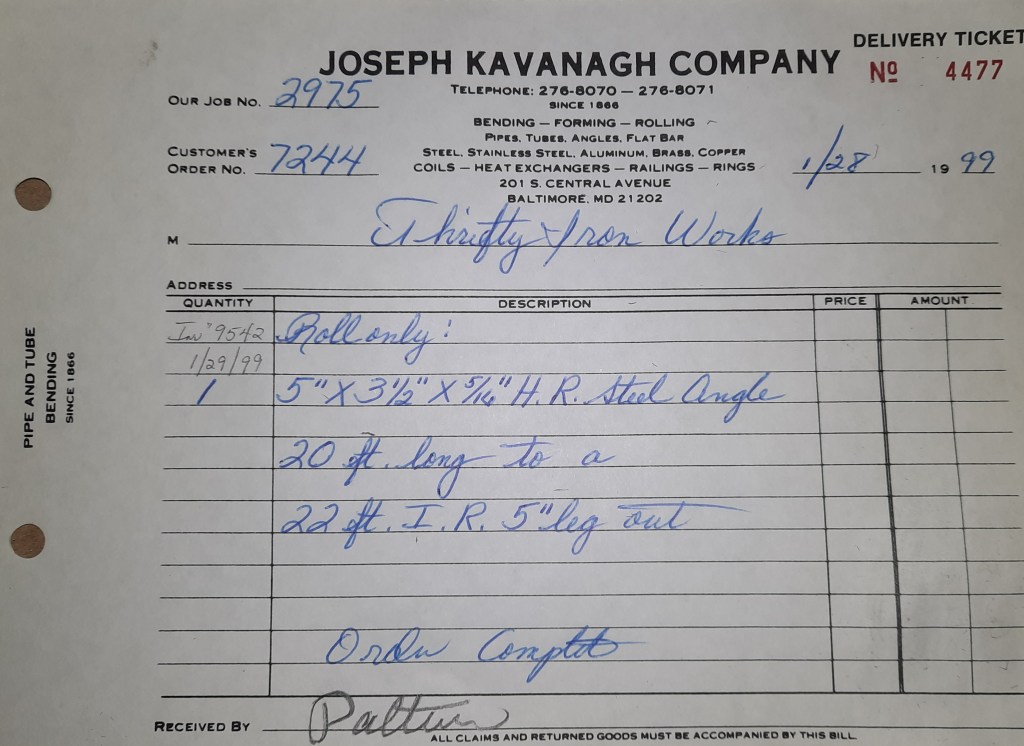 DELIVERY TICKET
JOSEPH KAVANAGH COMPANY
Nº 4477
OUR JOB NO. 2975
TELEPHONE: 276-8070 — 276-8071
SINCE 1866
BENDING — FORMING — ROLLING
PIPES, TUBES, ANGLES, FLAT BAR
CUSTOMER'S
ORDER NO. 7244
STEEL, STAINLESS STEEL, ALUMINUM, BRASS, COPPER
COILS — HEAT EXCHANGERS — RAILINGS — RINGS
1/28 19 99
201 S. CENTRAL AVENUE
BALTIMORE, MD 21202
M Thrifty Iron Works
ADDRESS
QUANTITY DESCRIPTION PRICE AMOUNT
Inv # 9542 Roll only:
1/29/99
1 5" X 3 1/2" X 5/16" H. R. Steel Angle
20 ft. long to a
22 ft. I. R. 5" leg out
Order Complete
RECEIVED BY
ALL CLAIMS AND RETURNED GOODS MUST BE ACCOMPANIED BY THIS BILL.
PIPE AND TUBE
BENDING
SINCE 1866